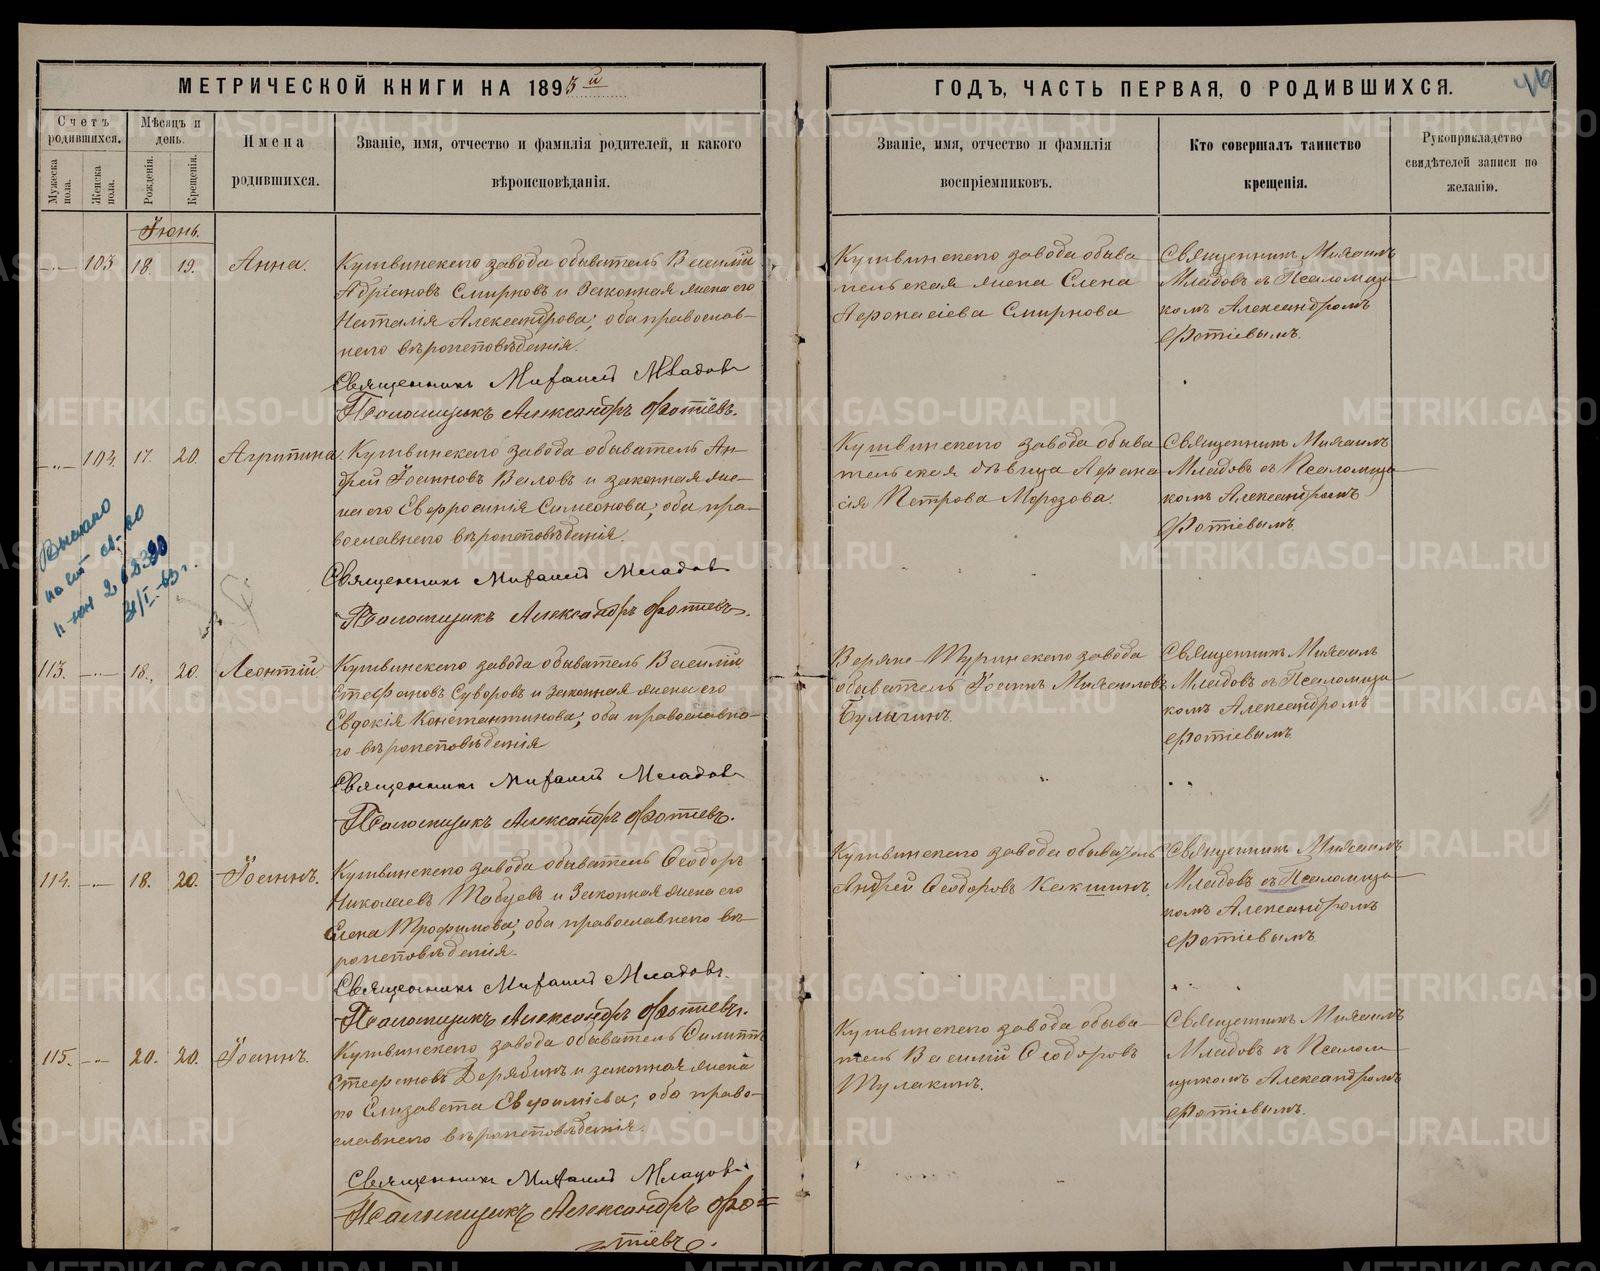 МЕТРИЧЕСКОЙ КНИГИ НА 1893 й
Счетъ родившихся.
Мѣсяцъ и день.
Мужеска пола.
Женска пола.
Рожденія.
Крещенія.
Имена
родившихся.
Званіе, имя, отчество и фамилія родителей, и какого
вѣроисповѣданія.
Іюнь.
103 18. 19. Анна.
Кушвинскаго завода обыватель Василій
Адріановъ Смирновъ и законная жена его
Наталія Александрова, оба православ-
наго вѣроисповѣданія.
Священникъ Михаилъ Младовъ
Псаломщикъ Александръ Фотіевъ.
104. 17. 20. Агрипина
Кушвинскаго завода обыватель Ан-
дрей Іоанновъ Валовъ и законная же-
на его Евфросинія Симеонова, оба пра-
вославнаго вѣроисповѣданія.
Священникъ Михаилъ Младовъ
Псаломщикъ Александръ Фотіевъ.
Выслано
31/I-
113. 18. 20. Леонтій
Кушвинскаго завода обыватель Василій
Стефановъ Суворовъ и законная жена его
Евдокія Константинова, оба православна-
го вѣроисповѣданія
Священникъ Михаилъ Младовъ
Псаломщикъ Александръ Фотіевъ.
114. 18. 20. Іоаннъ.
Кушвинскаго завода обыватель Ѳеодоръ
Николаевъ и законная жена его
Елена Трофимова, оба православнаго вѣ-
роисповѣданія.
Священникъ Михаилъ Младовъ.
Псаломщикъ Александръ Фотіевъ.
115. 20. 20. Іоаннъ.
Кушвинскаго завода обыватель Филиппъ
Стефановъ Дерябинъ и законная жена
го Елизавета Евфиміева, оба право-
славнаго вѣроисповѣданія.
Священникъ Михаилъ Младовъ
Псаломщикъ Александръ Фо=
тіевъ.
ГОДЪ, ЧАСТЬ ПЕРВАЯ, О РОДИВШИХСЯ.
46
Званіе, имя, отчество и фамилія
воспріемниковъ.
Кто совершалъ таинство
крещенія.
Рукоприкладство
свидѣтелей записи по
желанію.
Кушвинскаго завода обыва
тельская жена Елена
Аѳонасіева Смирнова
Священникъ Михаилъ
Младовъ съ Псаломщи
комъ Александромъ
Фотіевымъ.
Кушвинскаго завода обыва
тельская дѣвица Афана
сія Петрова Морозова.
Священникъ Михаилъ
Младовъ съ Псаломщи
комъ Александромъ
Фотіевымъ
Верхне-Туринскаго завода
обыватель Іоаннъ Михаиловъ
Булыгинъ.
Священникъ Михаилъ
Младовъ съ Псаломщи
комъ Александромъ
Фотіевымъ.
Кушвинскаго завода обыватель
Андрей Ѳеодоровъ Какшинъ.
Священникъ Михаилъ
Младовъ съ Псаломщи
комъ Александромъ
Фотіевымъ
Кушвинскаго завода обыва-
тель Василій Ѳеодоровъ
Тулакинъ.
Священникъ Михаилъ
Младовъ съ Псалом
щикомъ Александромъ
Фотіевымъ.
METRIKI.GASO-URAL.RU